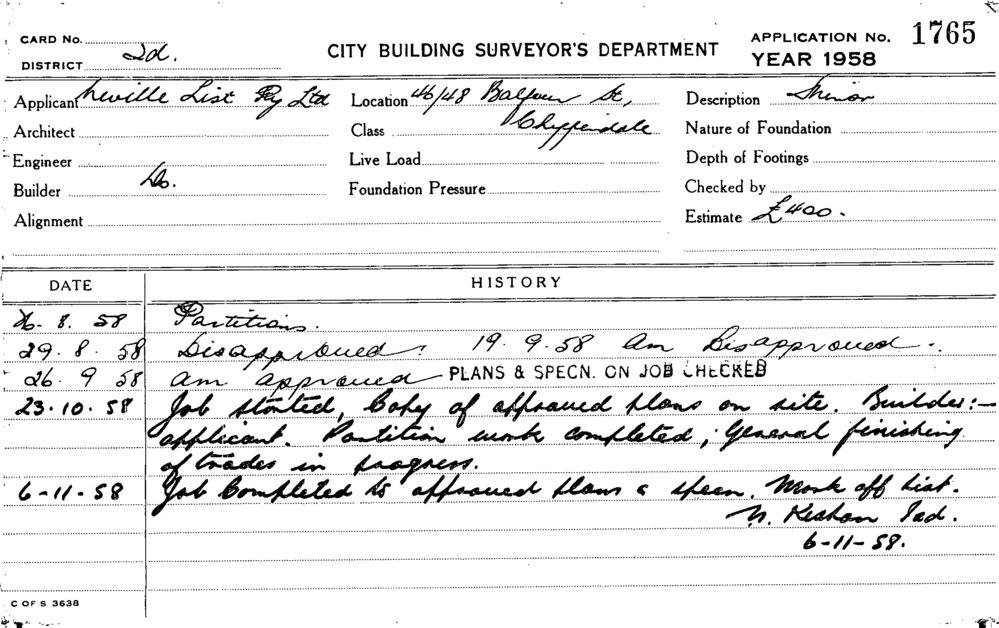 CARD No.
DISTRICT 2d.
CITY BUILDING SURVEYOR'S DEPARTMENT
APPLICATION No. 1765
YEAR 1958
Applicant Neville List Pty Ltd Location 46/48 Balfour St, Description Minor
Architect Class Chippendale Nature of Foundation
Engineer Live Load Depth of Footings
Builder Do. Foundation Pressure Checked by
Alignment Estimate £400.
DATE HISTORY
8. 58 Partitions.
29. 8. 58 Disapproved. 19. 9. 58 am Disapproved.
26. 9 58 am approved PLANS & SPECN. ON JOB CHECKED
23.10.58 Job started, Copy of approved plans on site. Builder:-
applicant. Partition work completed; General finishing
of trades in progress.
6-11-58 Job Completed to approved plans & specn. Mark off list.
2ad.
6-11-58.
C OF S 3638